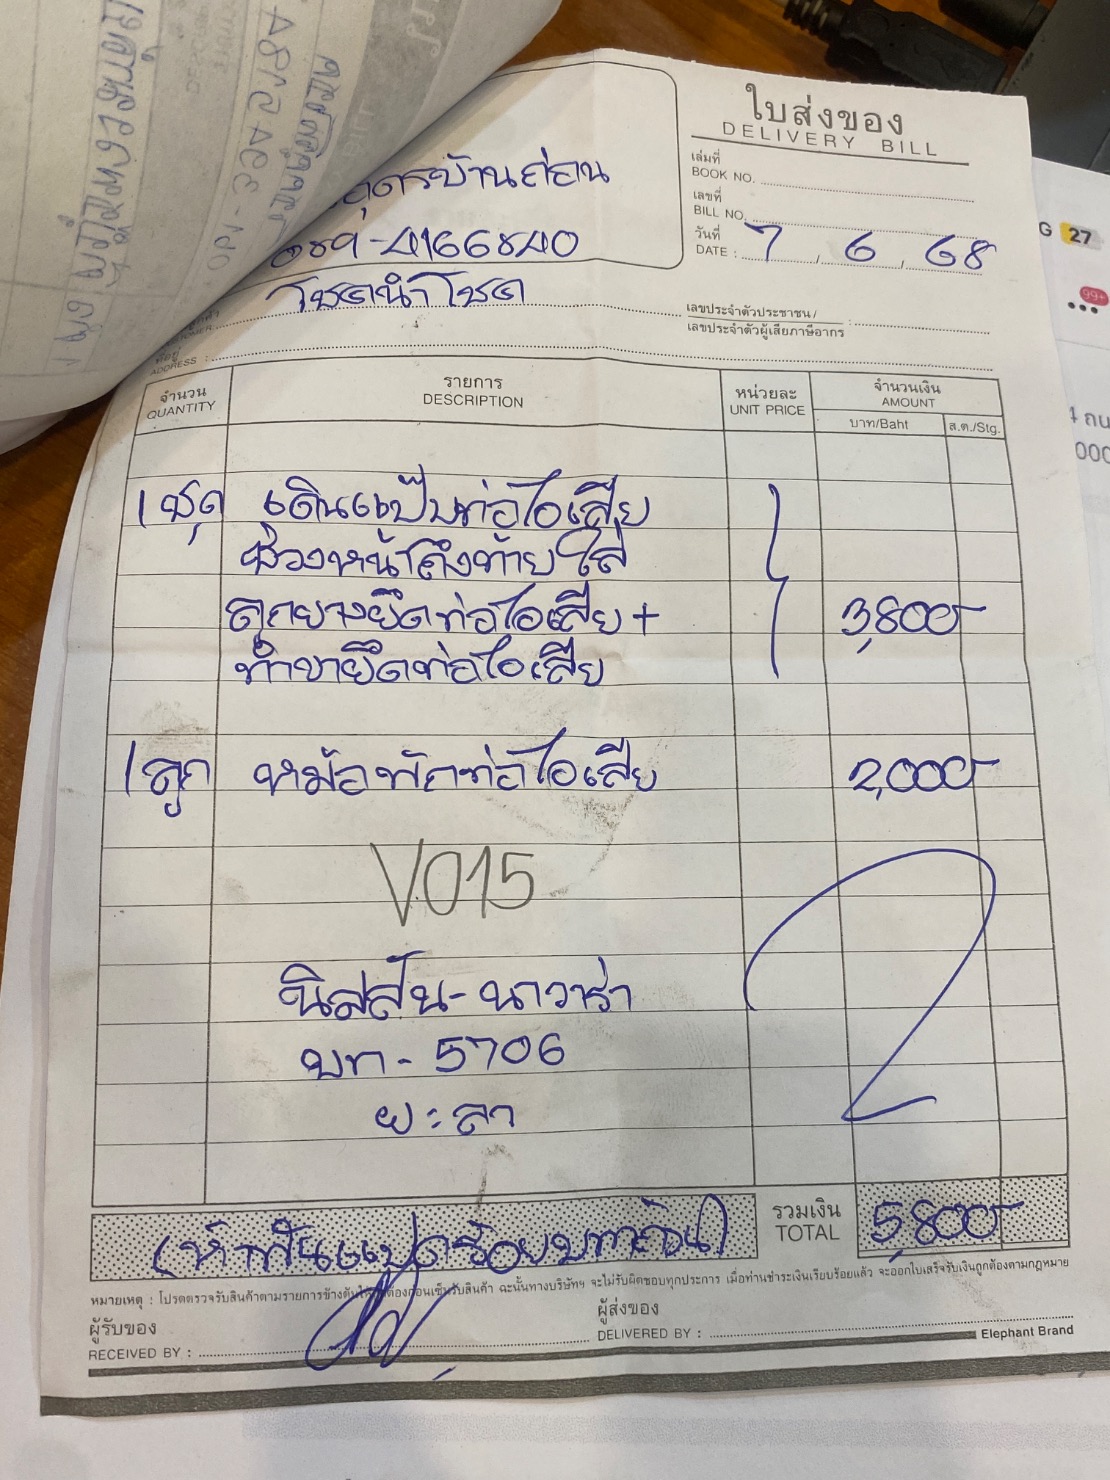 ใบส่งของ
DELIVERY BILL
เล่มที่
BOOK NO.
เลขที่
BILL NO.
วันที่
DATE : 7 , 6 , 68
089-4166840
โชคนำโชค
เลขประจำตัวประชาชน /
เลขประจำตัวผู้เสียภาษีอากร :
ที่อยู่
ADDRESS :
จำนวน
QUANTITY
รายการ
DESCRIPTION
หน่วยละ
UNIT PRICE
จำนวนเงิน
AMOUNT
บาท/Baht
ส.ต./Stg.
1 ชุด เดินแป๊บท่อไอเสีย
ช่วงหน้าถึงท้าย ใส่
ลูกยางยึดท่อไอเสีย + 3,800-
ทำขายึดท่อไอเสีย
1 ลูก หม้อพักท่อไอเสีย 2,000-
V.015
นิสสัน - นาวาร่า
บท - 5706
ยะลา
(ห้าพันแปดร้อยบาทถ้วน)
รวมเงิน
TOTAL
5,800-
หมายเหตุ : โปรดตรวจรับสินค้าตามรายการข้างต้นให้ถูกต้องก่อนเซ็นรับสินค้า ฉะนั้นทางบริษัทฯ จะไม่รับผิดชอบทุกประการ เมื่อท่านชำระเงินเรียบร้อยแล้ว จะออกใบเสร็จรับเงินถูกต้องตามกฎหมาย
ผู้รับของ
RECEIVED BY :
ผู้ส่งของ
DELIVERED BY :
Elephant Brand
G 27
99+